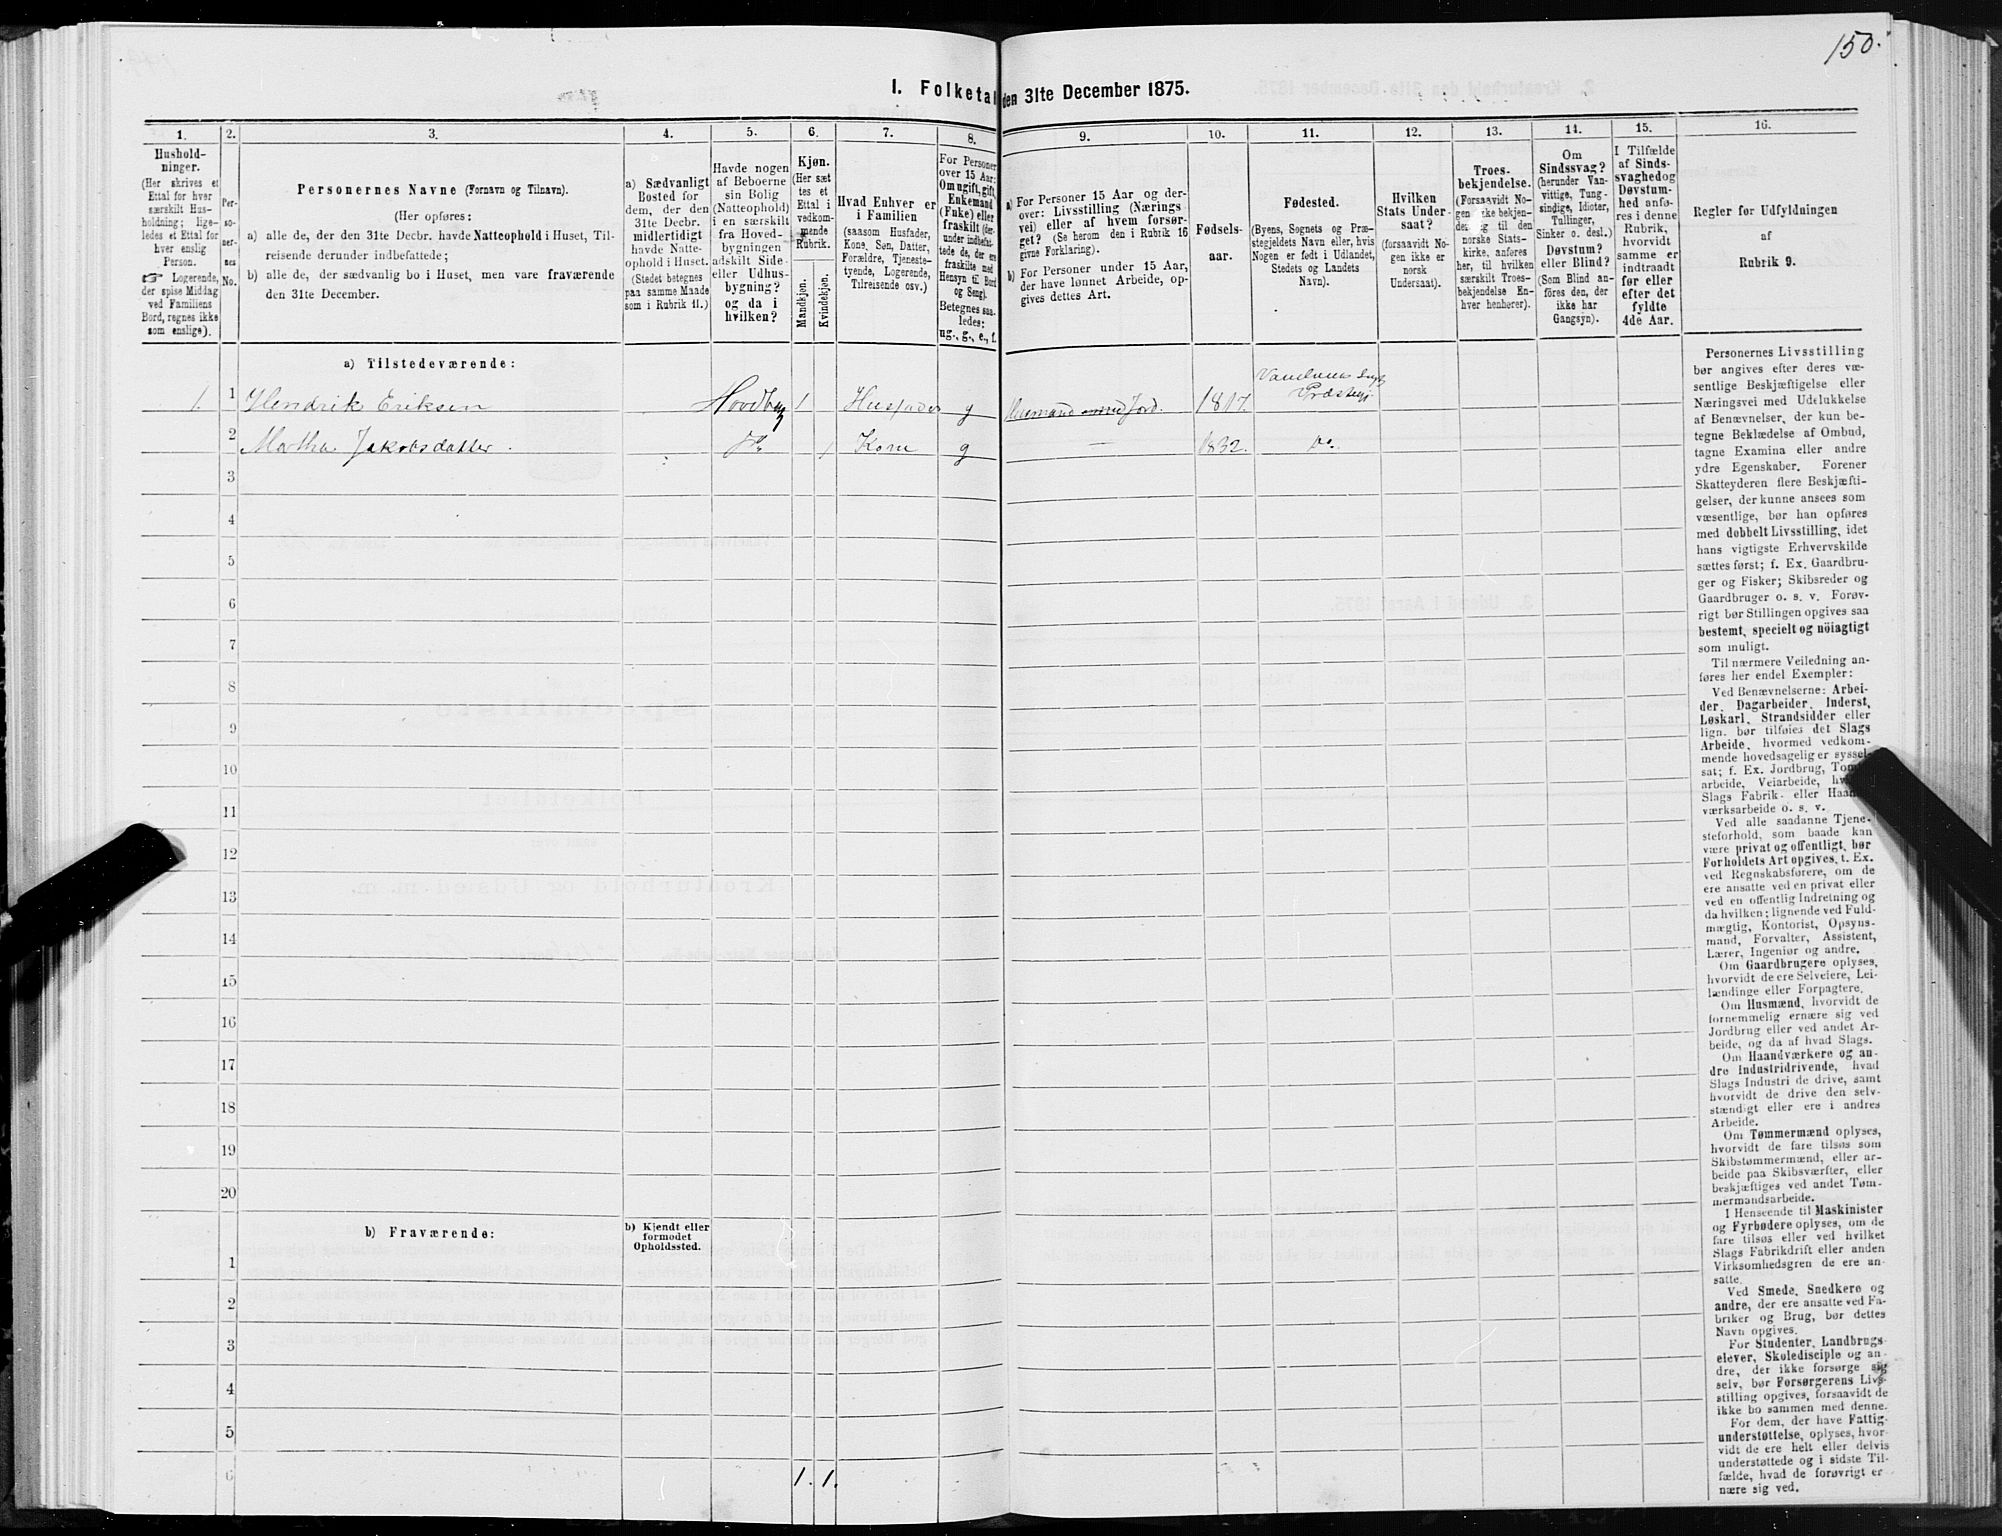 150.
I. Folketal den 31te December 1875.
1. 2. 3. 4. 5. 6. 7. 8. 9. 10. 11. 12. 13. 14. 15. 16.
Hushold-
ninger.
(Her skrives et
Ettal for hver
særskilt Hus-
holdning; lige-
ledes et Ettal for
hver enslig
Person.
☞ Logerende,
der spise Middag
ved Familiens
Bord, regnes ikke
som enslige).
Per-
so-
ner-
nes
No.
Personernes Navne (Fornavn og Tilnavn).
(Her opføres:
a) alle de, der den 31te Decbr. havde Natteophold i Huset, Til-
reisende derunder indbefattede;
b) alle de, der sædvanlig bo i Huset, men vare fraværende
den 31te December.
a) Sædvanligt
Bosted for
dem, der den
31te Decbr.
midlertidigt
havde Natte-
ophold i Huset.
(Stedet betegnes
paa samme Maade
som i Rubrik 11.)
Havde nogen
af Beboerne
sin Bolig
(Natteophold)
i en særskilt
fra Hoved-
bygningen
adskilt Side-
eller Udhus-
bygning?
og da i
hvilken?
Kjøn.
(Her sæt
tes et
Ettal i
vedkom-
mende
Rubrik.
Mandkjøn.
Kvindekjøn.
Hvad Enhver er
i Familien
(saasom Husfader,
Kone, Søn, Datter,
Forældre, Tjeneste-
tyende, Logerende,
Tilreisende osv.)
For Personer
over 15 Aar:
Om ugift, gift,
Enkemand
(Enke) eller
fraskilt (der-
under indbefat-
tede de, der ere
fraskilte med
Hensyn til Bord
og Seng).
Betegnes saa-
ledes:
ug., g., e., f.
a) For Personer 15 Aar og der-
over: Livsstilling (Nærings
vei) eller af hvem forsør-
get? (Se herom den i Rubrik 16
givne Forklaring).
b) For Personer under 15 Aar,
der have lønnet Arbeide, op-
gives dettes Art.
Fødsels-
aar.
Fødested.
(Byens, Sognets og Præ-
stegjeldets Navn eller, hvis
Nogen er født i Udlandet,
Stedets og Landets
Navn).
Hvilken
Stats Under-
saat?
(forsaavidt No-
gen ikke er
norsk
Undersaat).
Troes-
bekjendelse.
(Forsaavidt No-
gen ikke bekjen-
der sig til den
norske Stats-
kirke, anføres
her, til hvilken
særskilt Troes-
bekjendelse En-
hver henhører).
Om
Sindssvag?
(herunder Van-
vittige, Tung-
sindige, Idioter,
Tullinger,
Sinker o. desl.)
Døvstum?
eller Blind?
(Som Blind an-
føres den, der
ikke har
Gangsyn).
I Tilfælde
af Sinds-
svaghed og
Døvstum-
hed anfø-
res i denne
Rubrik,
hvorvidt
samme er
indtraadt
før eller
efter det
fyldte
4de Aar.
Regler for Udfyldningen
af
Rubrik 9.
a) Tilstedeværende:
1. 1 Hendrik Eriksen Hovedbyg 1 Husfader g Husmand med Jord. 1817.
Præstegj.
2 Martha Jakobsdatter. Do 1 Kone g — 1832. Do.
3
4
5
6
7
8
9
10
11
12
13
14
15
16
17
18
19
20
b) Fraværende:
b) Kjendt eller
formodet
Opholdssted.
1
2
3
4
5
6 1. 1.
Personernes Livsstilling
bør angives efter deres væ-
sentlige Beskjæftigelse eller
Næringsvei med Udelukkelse
af Benævnelser, der kun be-
tegne Beklædelse af Ombud,
tagne Examina eller andre
ydre Egenskaber. Forener
Skatteyderen flere Beskjæfti-
gelser, der kunne ansees som
væsentlige, bør han opføres
med dobbelt Livsstilling, idet
hans vigtigste Erhvervskilde
sættes først; f. Ex. Gaardbru-
ger og Fisker; Skibsreder og
Gaardbruger o. s. v. Forøv-
rigt bør Stillingen opgives saa
bestemt, specielt og nöiagtigt
som muligt.
Til nærmere Veiledning an-
føres her endel Exempler:
Ved Benævnelserne: Arbei-
der, Dagarbeider, Inderst,
Løskarl, Strandsidder eller
lign. bør tilføies det Slags
Arbeide, hvormed vedkom-
mende hovedsagelig er syssel-
sat; f. Ex. Jordbrug, Tomte-
arbeide, Veiarbeide, hvad
Slags Fabrik- eller Haand-
værksarbeide o. s. v.
Ved alle saadanne Tjene-
steforhold, som baade kan
være privat og offentligt, bør
Forholdets Art opgives, t. Ex.
ved Regnskabsførere, om de
ere ansatte ved en privat eller
ved en offentlig Indretning og
da hvilken; lignende ved Fuld-
mægtig, Kontorist, Opsyns-
mand, Forvalter, Assistent,
Lærer, Ingeniør og andre.
Om Gaardbrugere oplyses,
hvorvidt de ere Selveiere, Lei-
lændinge eller Forpagtere.
Om Husmænd, hvorvidt de
fornemmelig ernære sig ved
Jordbrug eller ved andet Ar-
beide, og da af hvad Slags.
Om Haandværkere og an-
dre Industridrivende, hvad
Slags Industri de drive, samt
hvorvidt de drive den selv-
stændigt eller ere i andres
Arbeide.
Om Tømmermænd oplyses,
hvorvidt de fare tilsøs som
Skibstømmermænd, eller ar-
beide paa Skibsværfter, eller
beskjæftiges ved andet Tøm-
mermandsarbeide.
I Henseende til Maskinister
og Fyrbødere oplyses, om de
fare tilsøs eller ved hvilket
Slags Fabrikdrift eller anden
Virksomhedsgren de ere an-
satte.
Ved Smede, Snedkere og
andre, der ere ansatte ved Fa-
briker og Brug, bør dettes
Navn opgives.
For Studenter, Landbrugs-
elever, Skoledisciple og an-
dre, der ikke forsørge sig
selv, bør Forsørgerens Livs-
stilling opgives, forsaavidt de
ikke bo sammen med denne.
For dem, der have Fattig-
understøttelse, oplyses, hvor-
vidt de ere helt eller delvis
understøttede og i sidste Til-
fælde, hvad de forøvrigt er-
nære sig ved.